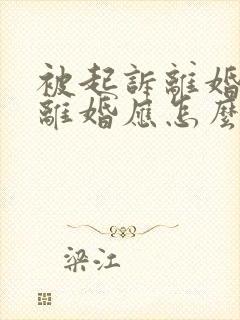 被起訴離婚
離婚應怎麼
梁江